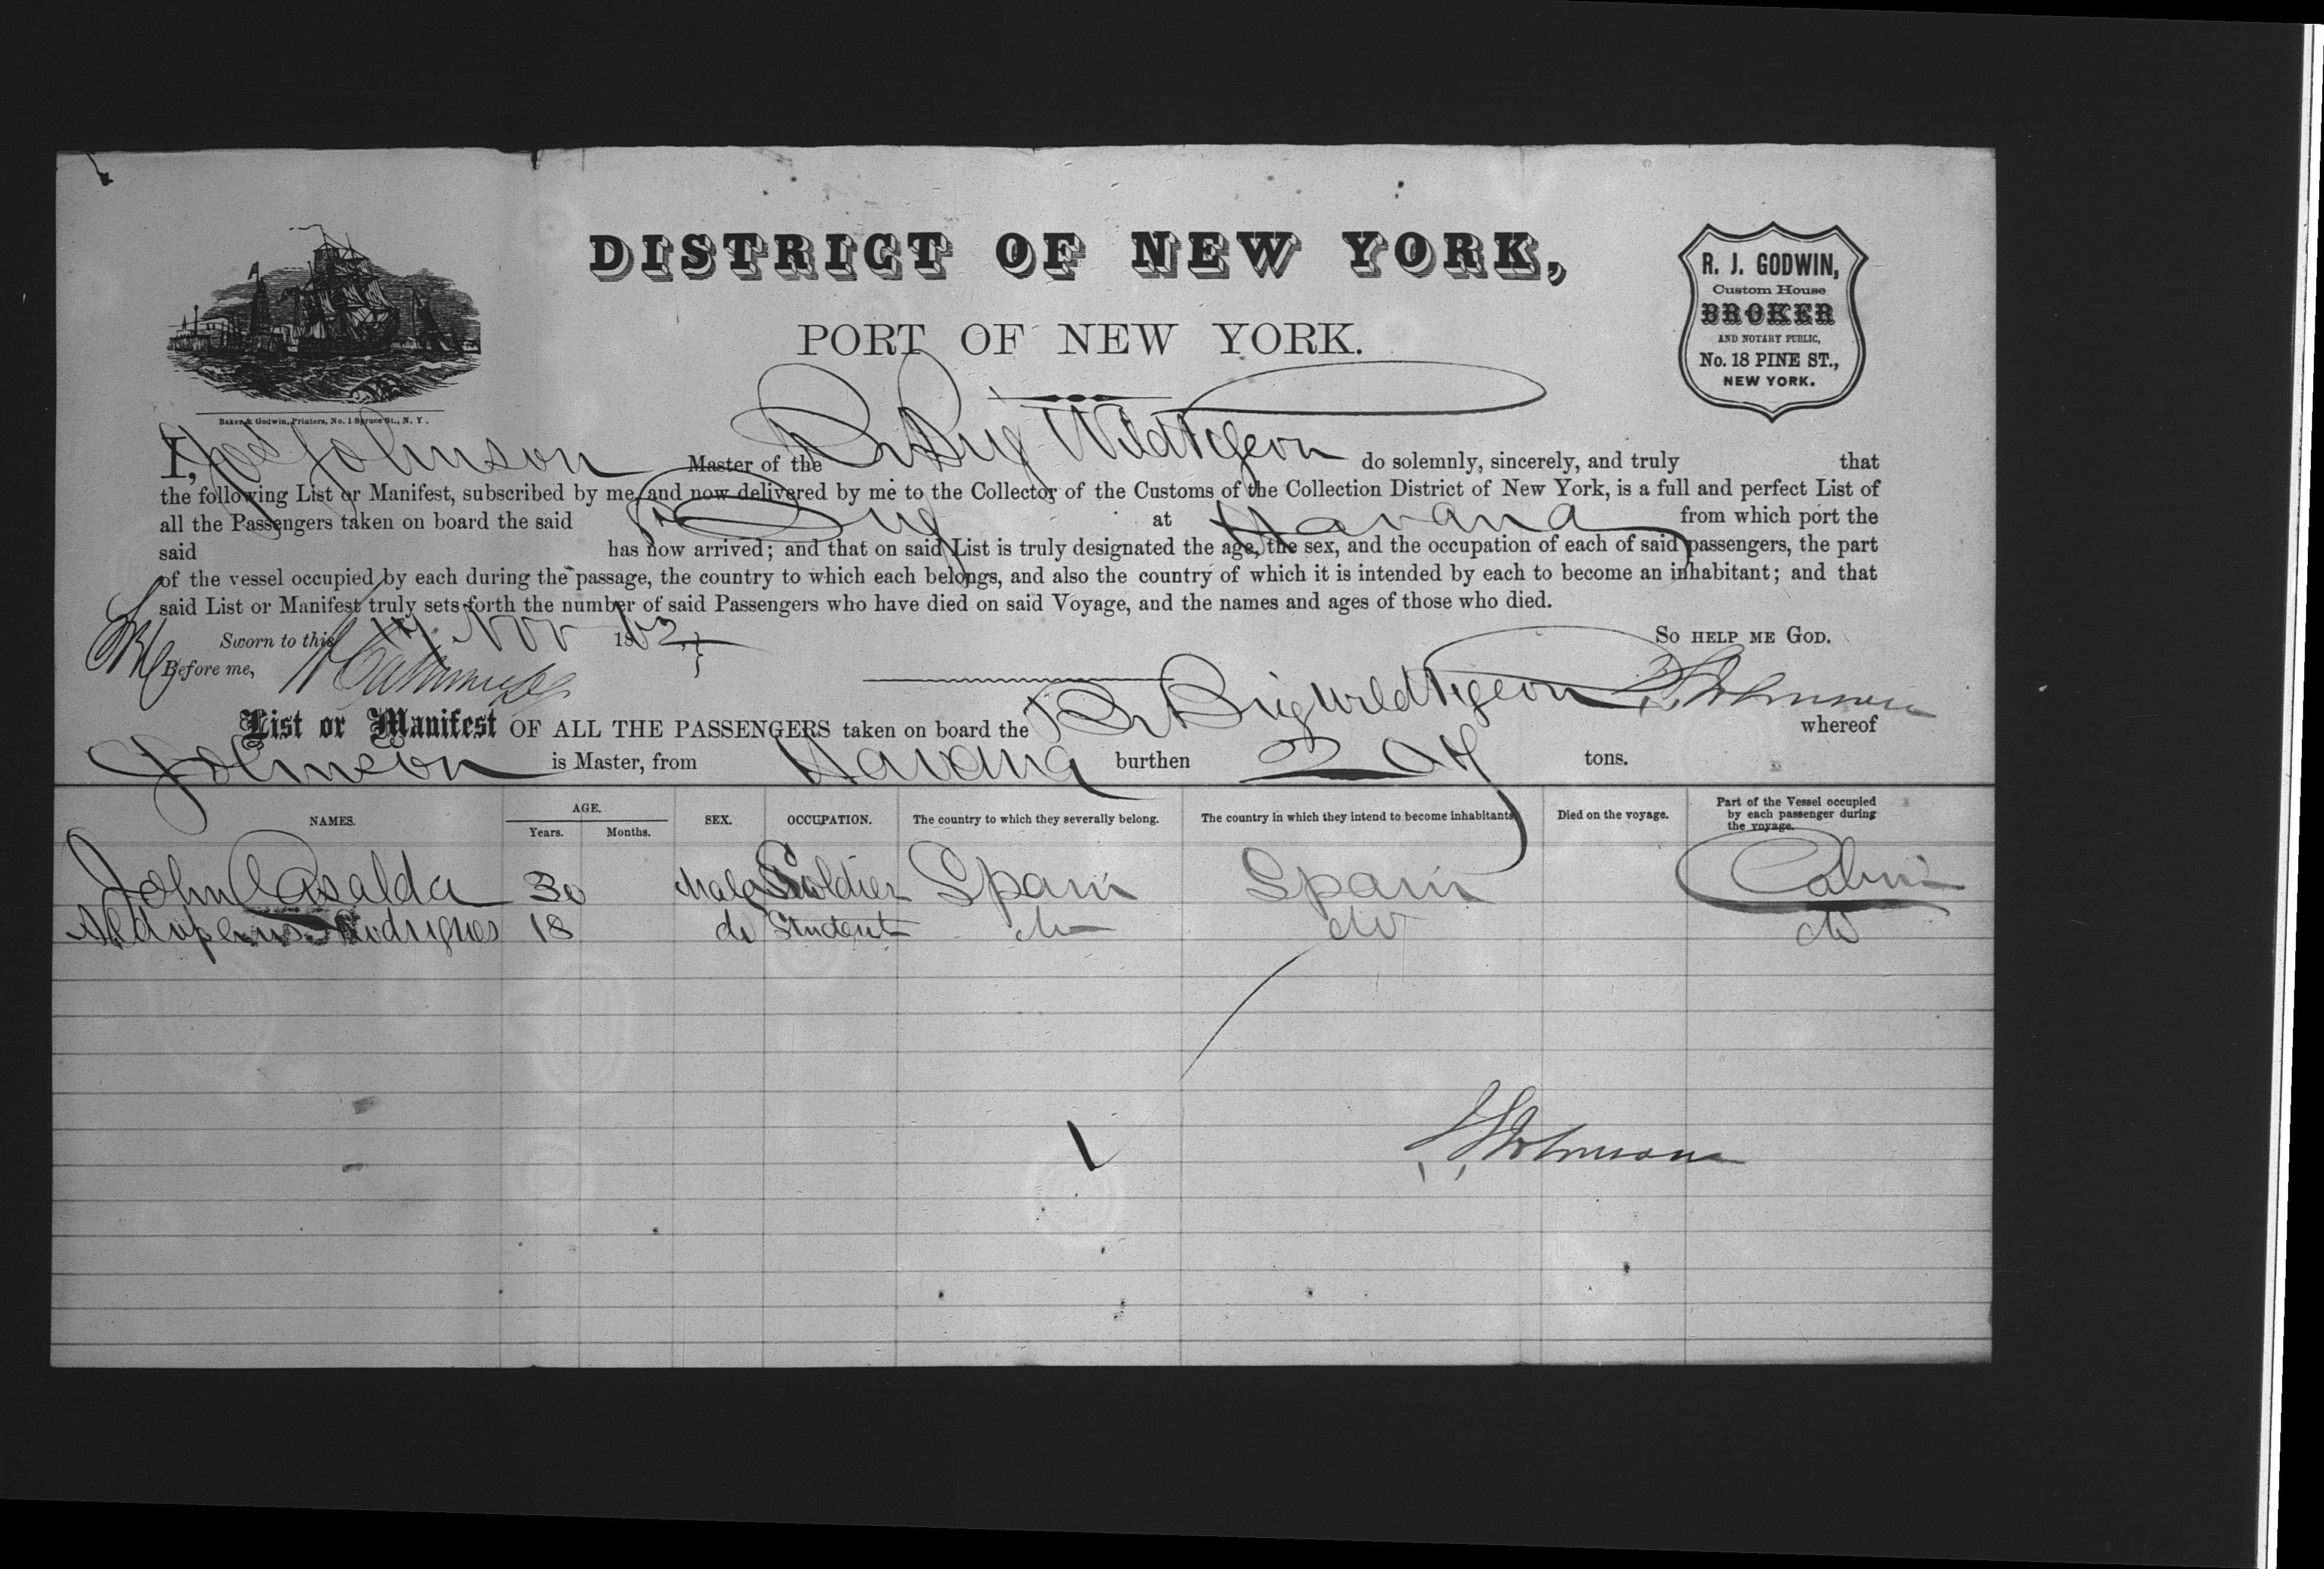 DISTRICT OF NEW YORK,
PORT OF NEW YORK.
R. J. GODWIN,
Custom House
BROKER
AND NOTARY PUBLIC,
No. 18 PINE ST.,
NEW YORK.
Baker & Godwin, Printers, No. 1 Spruce St., N. Y.
I, Johnson Master of the Br Brig Wild Pigeon do solemnly, sincerely, and truly that
the following List or Manifest, subscribed by me, and now delivered by me to the Collector of the Customs of the Collection District of New York, is a full and perfect List of
all the Passengers taken on board the said Brig at Havana from which port the
said has now arrived; and that on said List is truly designated the age, the sex, and the occupation of each of said passengers, the part
of the vessel occupied by each during the passage, the country to which each belongs, and also the country of which it is intended by each to become an inhabitant; and that
said List or Manifest truly sets forth the number of said Passengers who have died on said Voyage, and the names and ages of those who died.
Sworn to this 17 Nov 1862 So HELP ME GOD.
Before me, Johnson
List or Manifest OF ALL THE PASSENGERS taken on board the Br Brig Wild Pigeon whereof
Johnson is Master, from Havana burthen 207 tons.
NAMES. AGE. Years. Months. SEX. OCCUPATION. The country to which they severally belong. The country in which they intend to become inhabitants. Died on the voyage. Part of the Vessel occupied by each passenger during the voyage.
John Casalda 30 Male Soldier Spain Spain Cabin
Rodrigues 18 do Student do do do
Johnson